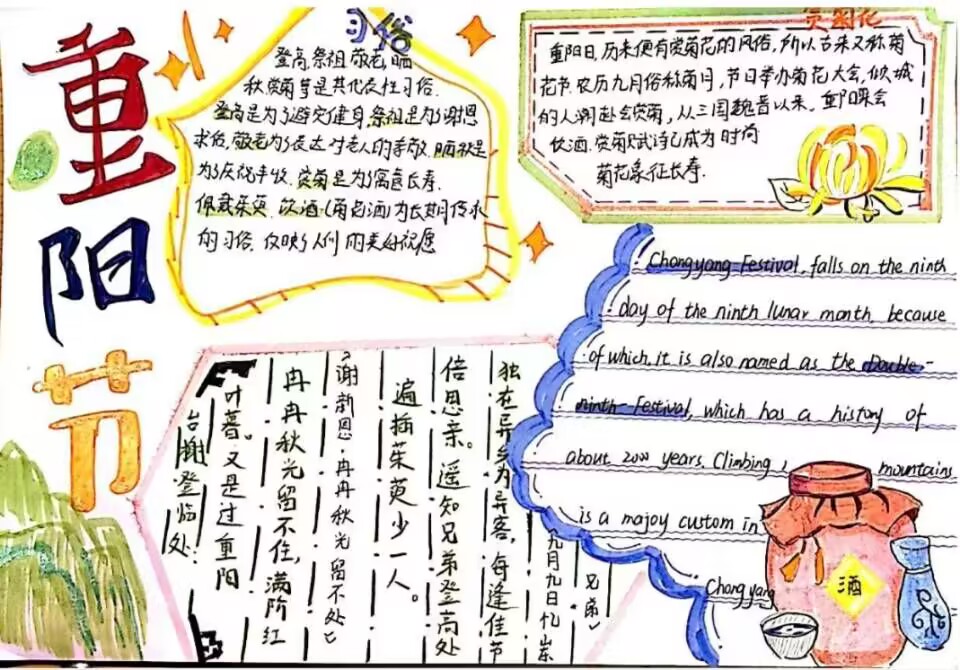 重阳节
习俗
登高,祭祖,敬老,晒
秋赏菊等是其代表性习俗.
登高是为了避灾健身,祭祖是为了谢恩
求佑,敬老为了表达对老人的孝敬,晒秋是
为了庆祝丰收.赏菊是为了寓意长寿.
佩戴茱萸、饮酒(菊花酒)为长期传承
的习俗,反映了人们的美好祝愿
赏菊花
重阳日,历来便有赏菊花的风俗,所以古来又称菊
花节.农历九月俗称菊月,节日举办菊花大会,倾城
的人潮赴会赏菊,从三国魏晋以来,重阳聚会
饮酒.赏菊赋诗已成为时尚
菊花象征长寿.
Chongyang Festival, falls on the ninth
day of the ninth lunar month, because
of which, it is also named as the Double-
ninth-Festival, which has a history of
about 2000 years, Climbing mountains
is a majoy custom in
Chongyang
酒
九月九日忆山东
兄弟
独在异乡为异客,每逢佳节
倍思亲。遥知兄弟登高处
遍插茱萸少一人。
谢新恩·冉冉秋光留不处
冉冉秋光留不住,满阶红
叶暮。又是过重阳
台榭登临处.